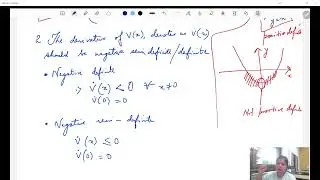 2 The derivative of V(x), denoted as V̇(x)
should be negative semi definite/definite
• Negative definite
⇒ V̇(x) < 0 ∀ x≠0
V̇(0) = 0
• Negative semi-definite
V̇(x) ≤ 0
V̇(0) = 0
positive definite
y
x
Not positive definite